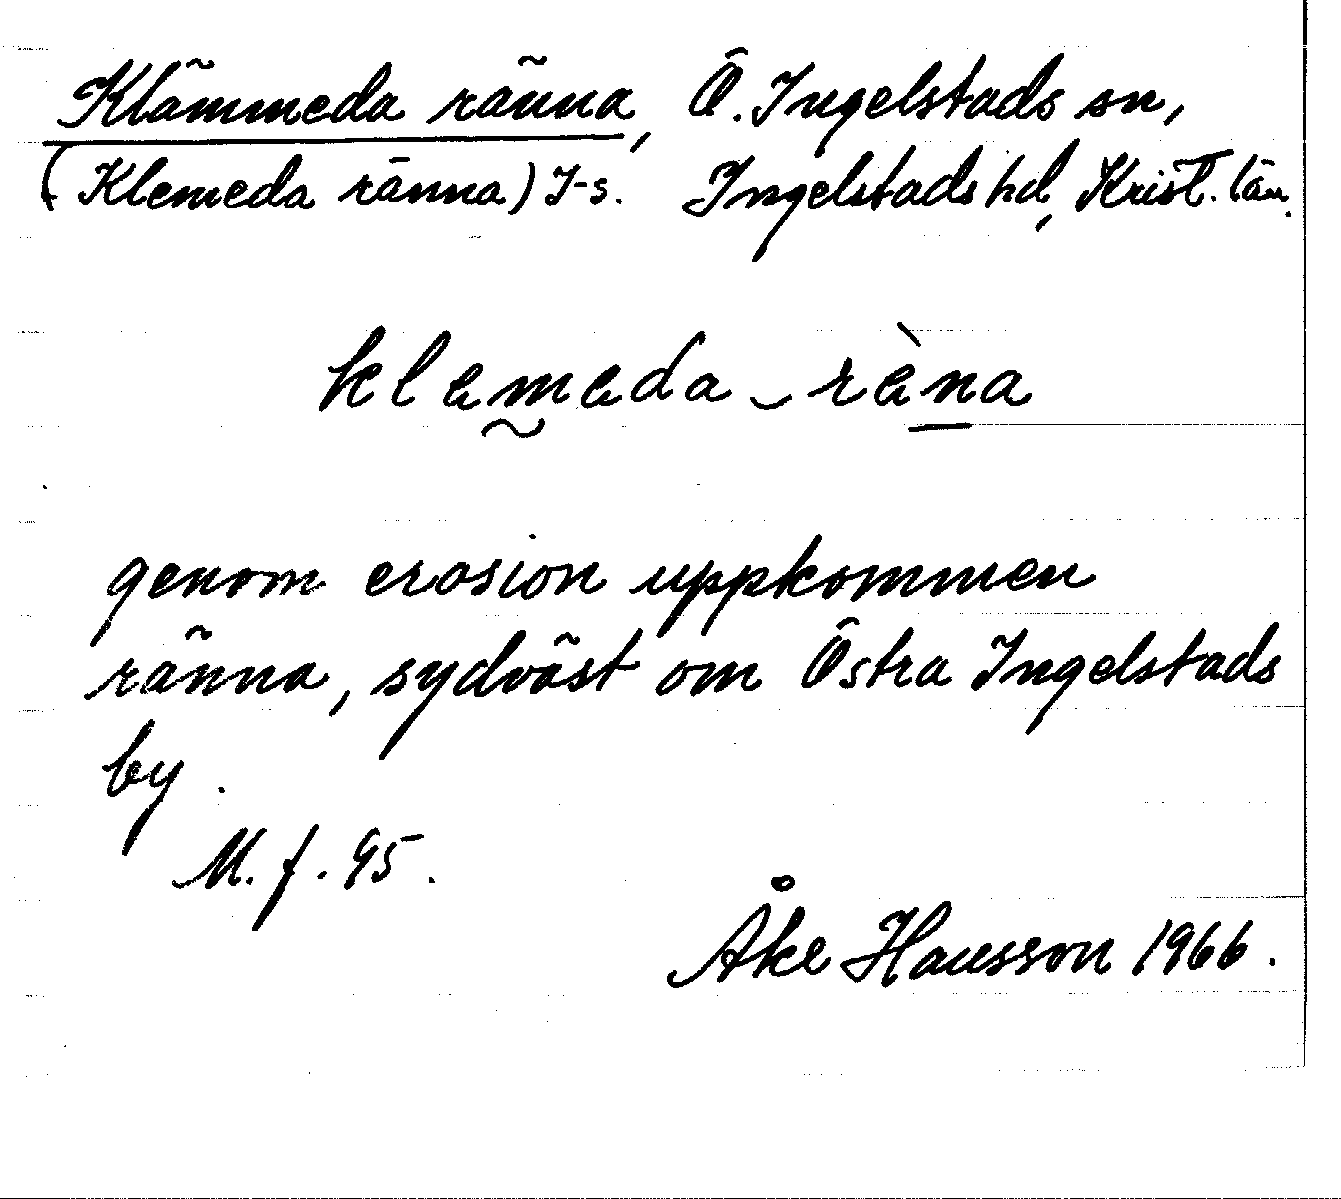 Klämmeda ränna, Ö. Ingelstads sn,
(Klemeda ränna) I-s. Ingelstads hd, Krist. län.
klemeda ‿ rèna
genom erosion uppkommen
ränna, sydväst om Östra Ingelstads
by.
M. f. 95.
Åke Hansson 1966.